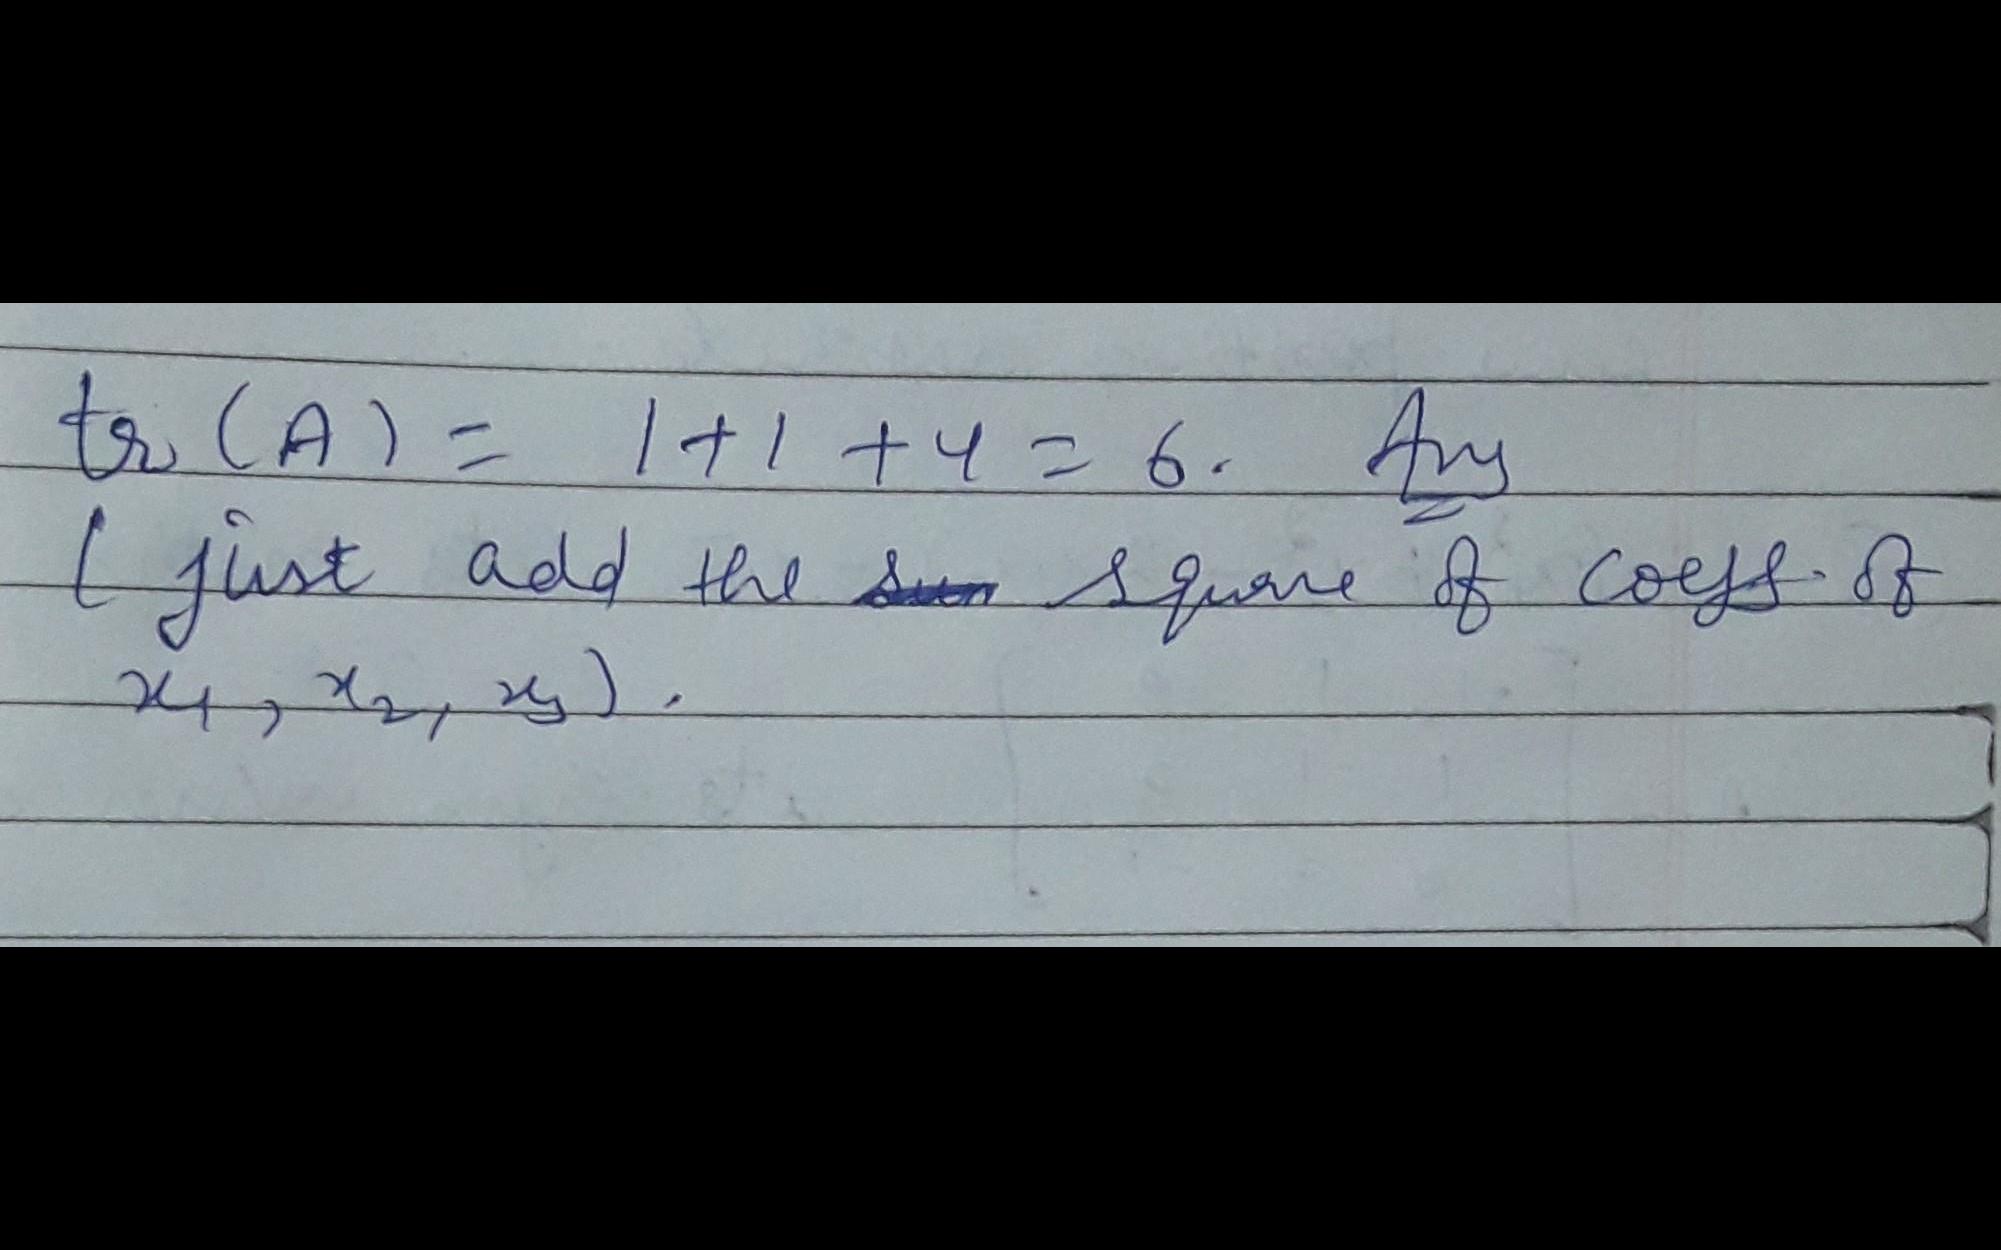 tr(A) = 1+1+4 = 6. Ans
( just add the square of coeff. of
x1, x2, x3).